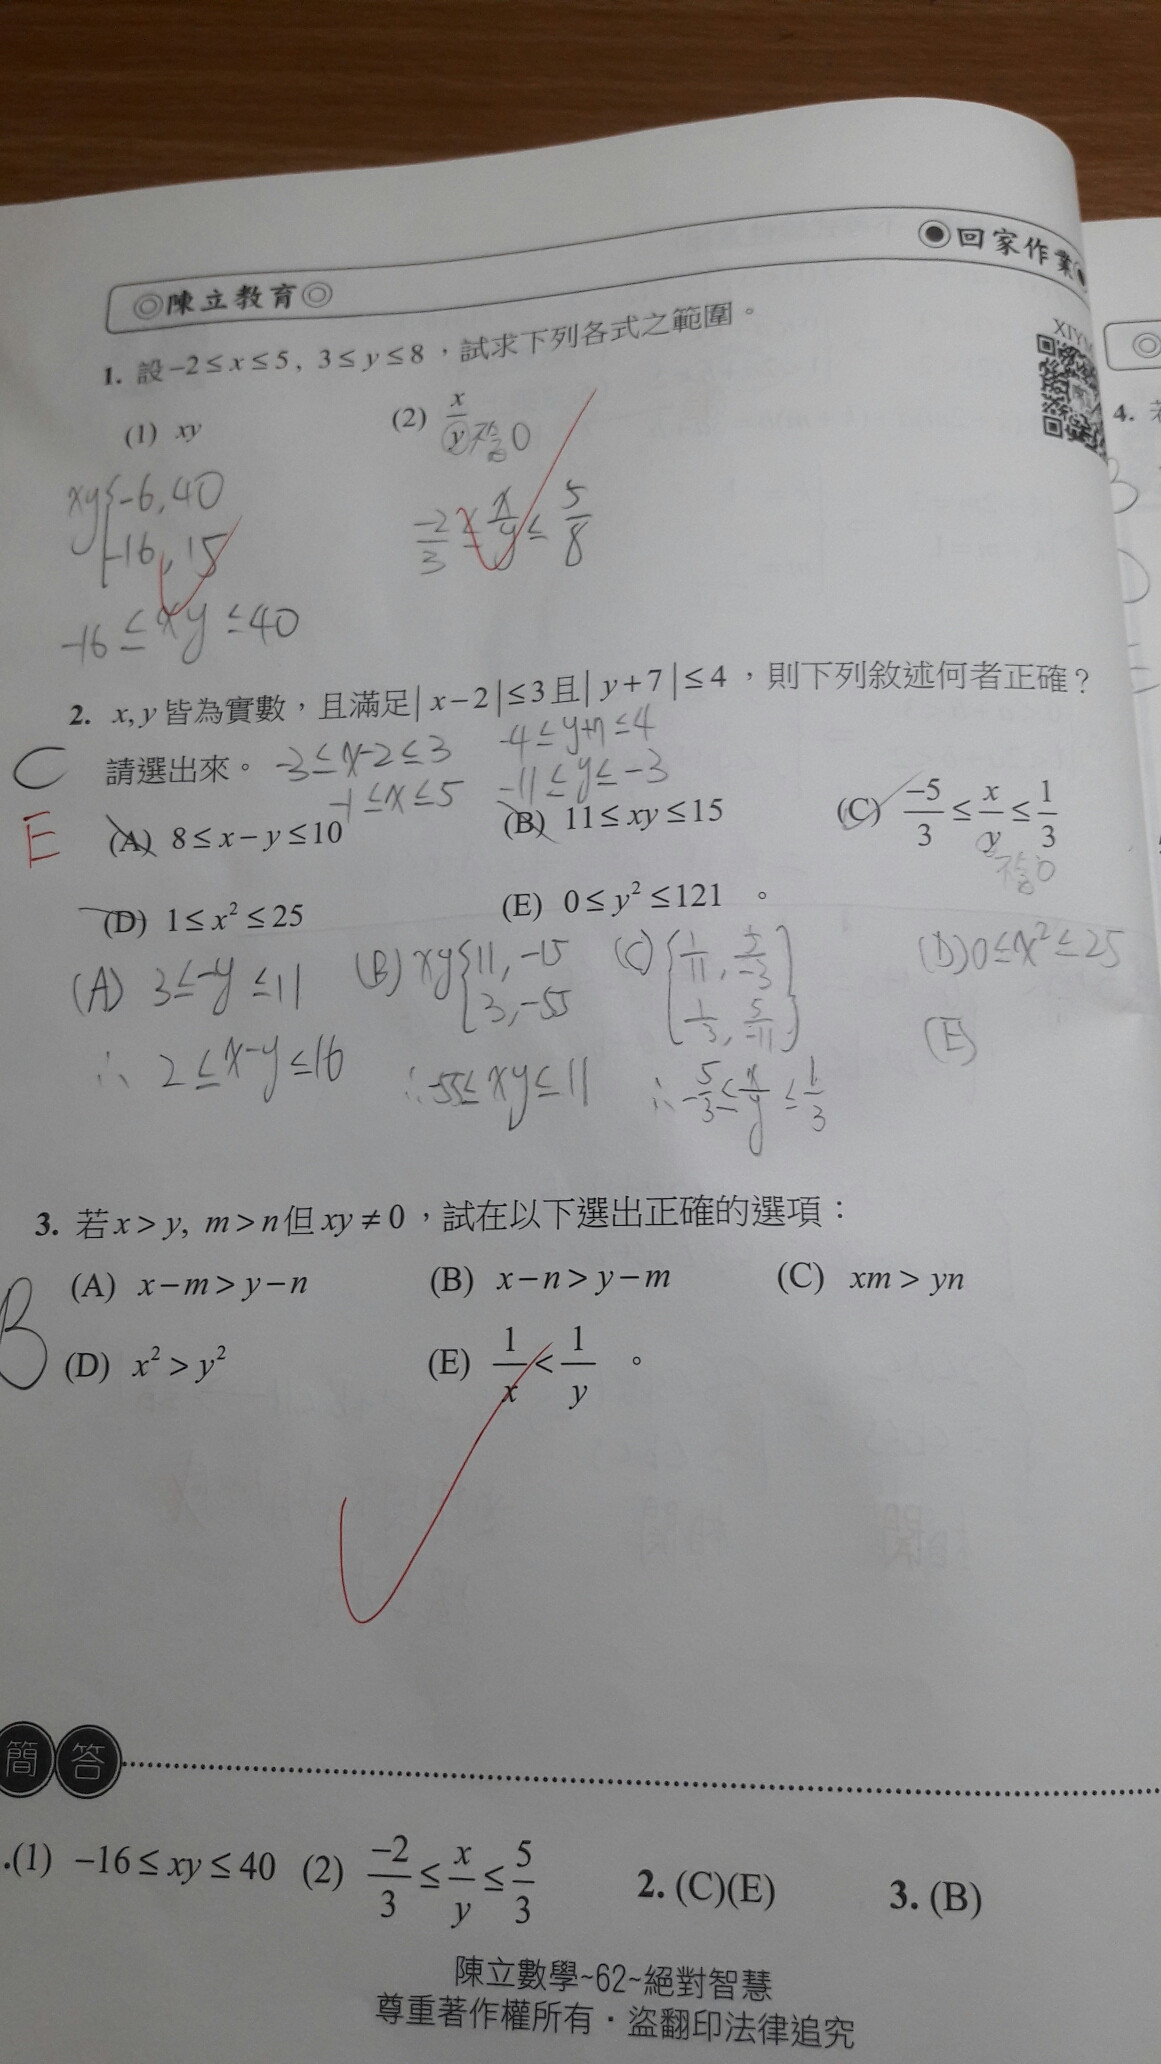 ◎陳立教育◎
●回家作業●
XIYM
1. 設 −2 ≤ x ≤ 5, 3 ≤ y ≤ 8，試求下列各式之範圍。
(1) xy (2) x/y 不含0
xy{-6, 40
-16, 15
-2/3 ≤ x/y ≤ 5/8
-16 ≤ xy ≤ 40
2. x, y 皆為實數，且滿足 | x − 2 | ≤ 3 且 | y + 7 | ≤ 4，則下列敘述何者正確？
C 請選出來。 -3 ≤ x-2 ≤ 3 -4 ≤ y+7 ≤ 4
-1 ≤ x ≤ 5 -11 ≤ y ≤ -3
E (A) 8 ≤ x − y ≤ 10 (B) 11 ≤ xy ≤ 15 (C) −5/3 ≤ x/y ≤ 1/3
不含0
(D) 1 ≤ x² ≤ 25 (E) 0 ≤ y² ≤ 121 。
(A) 3 ≤ -y ≤ 11 (B) xy{11, -15 (C) {1/11, 5/-3} (D) 0 ≤ x² ≤ 25
3, -55 1/3, 5/-11 (E)
∴ 2 ≤ x-y ≤ 16 ∴ -55 ≤ xy ≤ 11 ∴ -5/3 ≤ x/y ≤ 1/3
3. 若 x > y, m > n 但 xy ≠ 0，試在以下選出正確的選項：
B (A) x − m > y − n (B) x − n > y − m (C) xm > yn
(D) x² > y² (E) 1/x < 1/y 。
簡答
.(1) −16 ≤ xy ≤ 40 (2) −2/3 ≤ x/y ≤ 5/3 2. (C)(E) 3. (B)
陳立數學~62~絕對智慧
尊重著作權所有・盜翻印法律追究
◎
4. 若